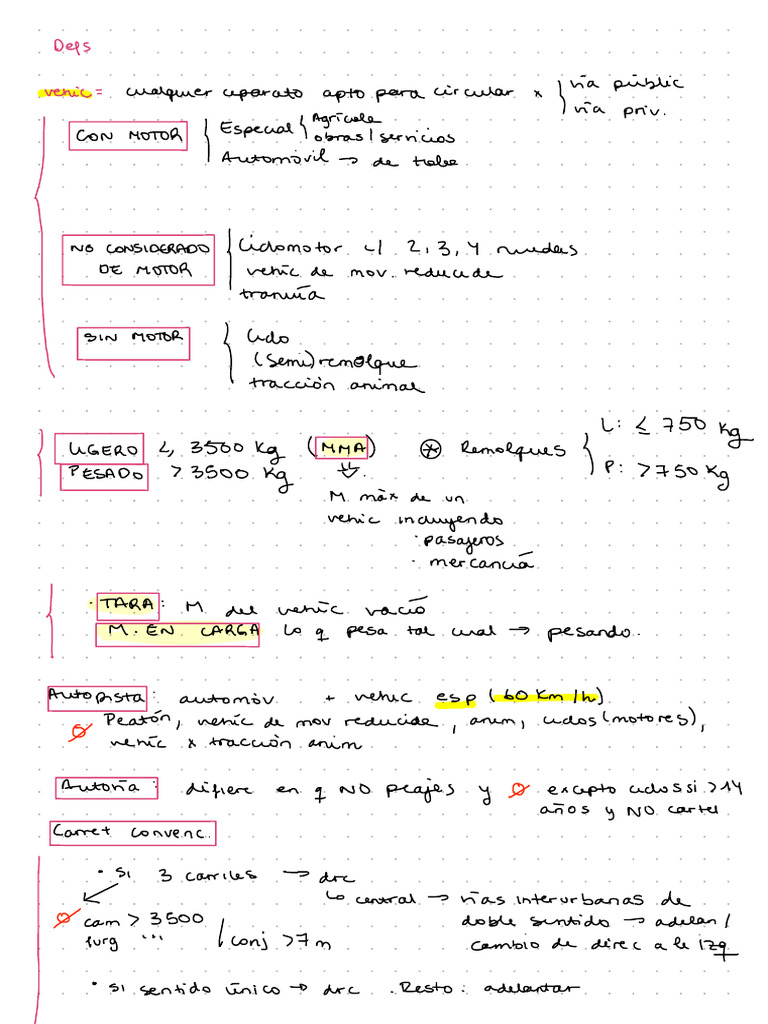 Defs
vehíc = cualquier aparato apto para circular x { vía públic
vía priv.
CON MOTOR { Especial { Agrícola
obras/servicios
Automóvil → de
NO CONSIDERADO DE MOTOR { Ciclomotor c/ 2, 3, 4 ruedas
vehíc de mov. reducida
tranvía
SIN MOTOR { Ciclo
(semi)remolque
tracción animal
LIGERO ≤ 3500 kg (MMA) * Remolques { L: ≤ 750 kg
PESADO > 3500 kg P: > 750 kg
M máx de un
vehíc incluyendo
· pasajeros
· mercancía
· TARA: M del vehíc vacío
M. EN CARGA lo q pesa tal cual → pesando.
Autopista: automóv + vehíc esp (60 km/h)
Ø Peatón, vehíc de mov reducida, anim, ciclos (motores),
vehíc x tracción anim
Autovía: difiere en q NO peajes y Ø excepto ciclos si > 14
años y NO cartel
Carret convenc.
· si 3 carriles → drc
↳ central → vías interurbanas de
doble sentido → adelan/
cambio de direc a la izq
Ø cam > 3500
furg ... / conj > 7 m
· si sentido único → drc. Resto: adelantar